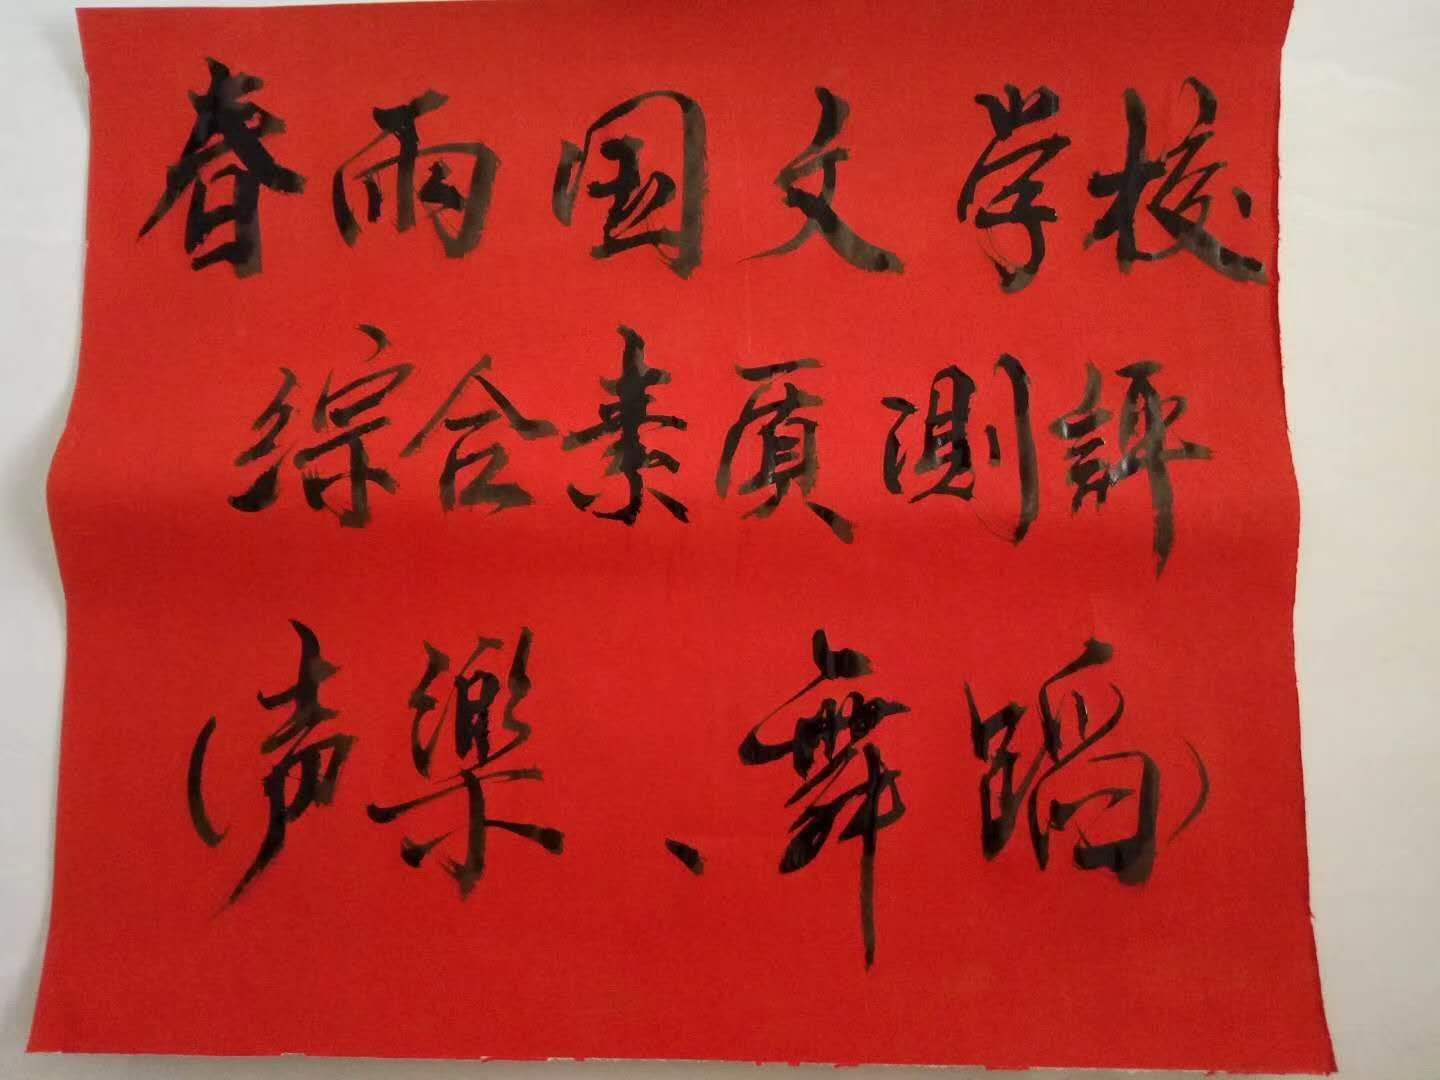 春雨国文学校
综合素质测評
(声樂、舞蹈)